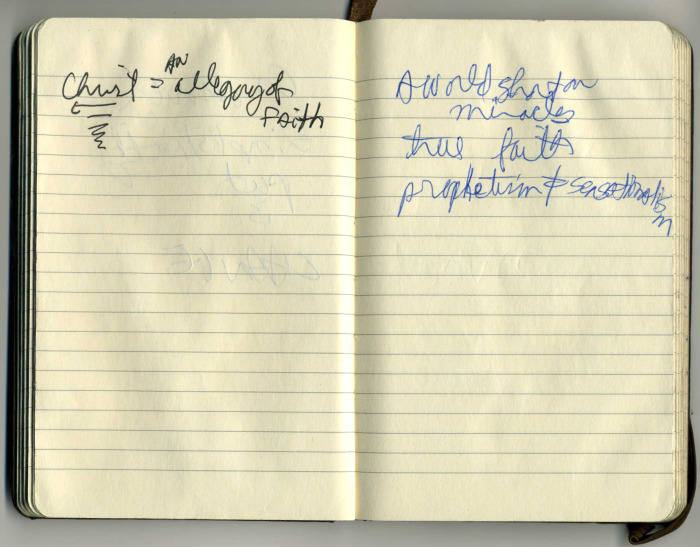 Christ = AN allegory of
Faith
A world short on
miracles
true faith
prophetism & sensationalis
m